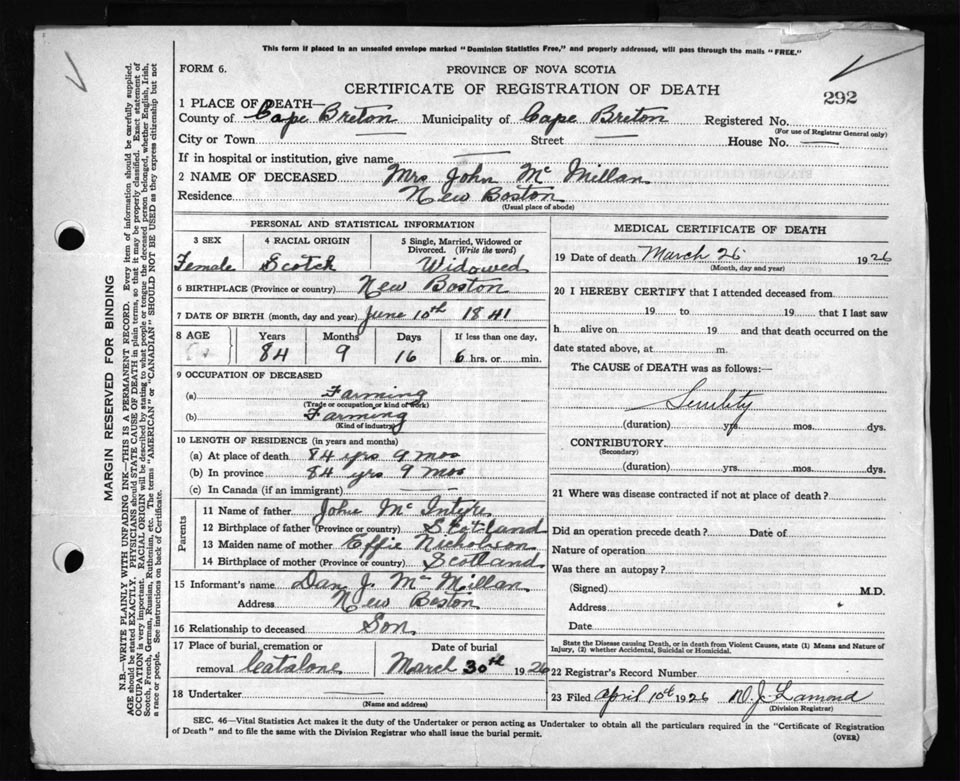 This form if placed in an unsealed envelope marked "Dominion Statistics Free," and properly addressed, will pass through the mails "FREE."
FORM 6.
PROVINCE OF NOVA SCOTIA
CERTIFICATE OF REGISTRATION OF DEATH
292
1 PLACE OF DEATH—
County of Cape Breton Municipality of Cape Breton Registered No.
(For use of Registrar General only)
City or Town Street — House No. —
If in hospital or institution, give name —
2 NAME OF DECEASED Mrs John Mc Millan
Residence New Boston
(Usual place of abode)
MARGIN RESERVED FOR BINDING
N.B.—WRITE PLAINLY WITH UNFADING INK—THIS IS A PERMANENT RECORD. Every item of information should be carefully supplied.
AGE should be stated EXACTLY. PHYSICIANS should STATE CAUSE OF DEATH in plain terms, so that it may be properly classified. Exact statement of
OCCUPATION is very important. RACIAL ORIGIN will be described by stating to what people or tongue the deceased person belonged, whether English, Irish,
Scotch, French, German, Russian, Ruthenian, etc. The terms "AMERICAN" or "CANADIAN" SHOULD NOT BE USED as they express citizenship but not
a race or people. See instructions on back of Certificate.
PERSONAL AND STATISTICAL INFORMATION
3 SEX 4 RACIAL ORIGIN 5 Single, Married, Widowed or
Divorced. (Write the word)
Female Scotch Widowed
6 BIRTHPLACE (Province or country) New Boston
7 DATE OF BIRTH (month, day and year) June 10th 1841
8 AGE Years Months Days If less than one day,
84 9 16 6 hrs. or min.
9 OCCUPATION OF DECEASED
(a) Farming
(Trade or occupation or kind of work)
(b) Farming
(Kind of industry)
10 LENGTH OF RESIDENCE (in years and months)
(a) At place of death 84 yrs 9 mos
(b) In province 84 yrs 9 mos
(c) In Canada (if an immigrant)
Parents
11 Name of father John Mc Intyre
12 Birthplace of father (Province or country) Scotland
13 Maiden name of mother Effie Nicholson
14 Birthplace of mother (Province or country) Scotland
15 Informant's name Dan J Mc Millan
Address New Boston
16 Relationship to deceased Son
17 Place of burial, cremation or Date of burial
removal Catalone March 30th 1926
18 Undertaker —
(Name and address)
MEDICAL CERTIFICATE OF DEATH
19 Date of death March 26 1926
(Month, day and year)
20 I HEREBY CERTIFY that I attended deceased from
19 to 19 that I last saw
h alive on 19 and that death occurred on the
date stated above, at m.
The CAUSE of DEATH was as follows:—
Senility
(duration) yrs. mos. dys.
CONTRIBUTORY
(Secondary)
(duration) yrs. mos. dys.
21 Where was disease contracted if not at place of death?
Did an operation precede death? Date of
Nature of operation
Was there an autopsy?
(Signed) M.D.
Address
Date
State the Disease causing Death, or in death from Violent Causes, state (1) Means and Nature of
Injury, (2) whether Accidental, Suicidal or Homicidal.
22 Registrar's Record Number
23 Filed April 10th 1926 Lamond
(Division Registrar)
SEC. 46—Vital Statistics Act makes it the duty of the Undertaker or person acting as Undertaker to obtain all the particulars required in the "Certificate of Registration
of Death" and to file the same with the Division Registrar who shall issue the burial permit.
(OVER)